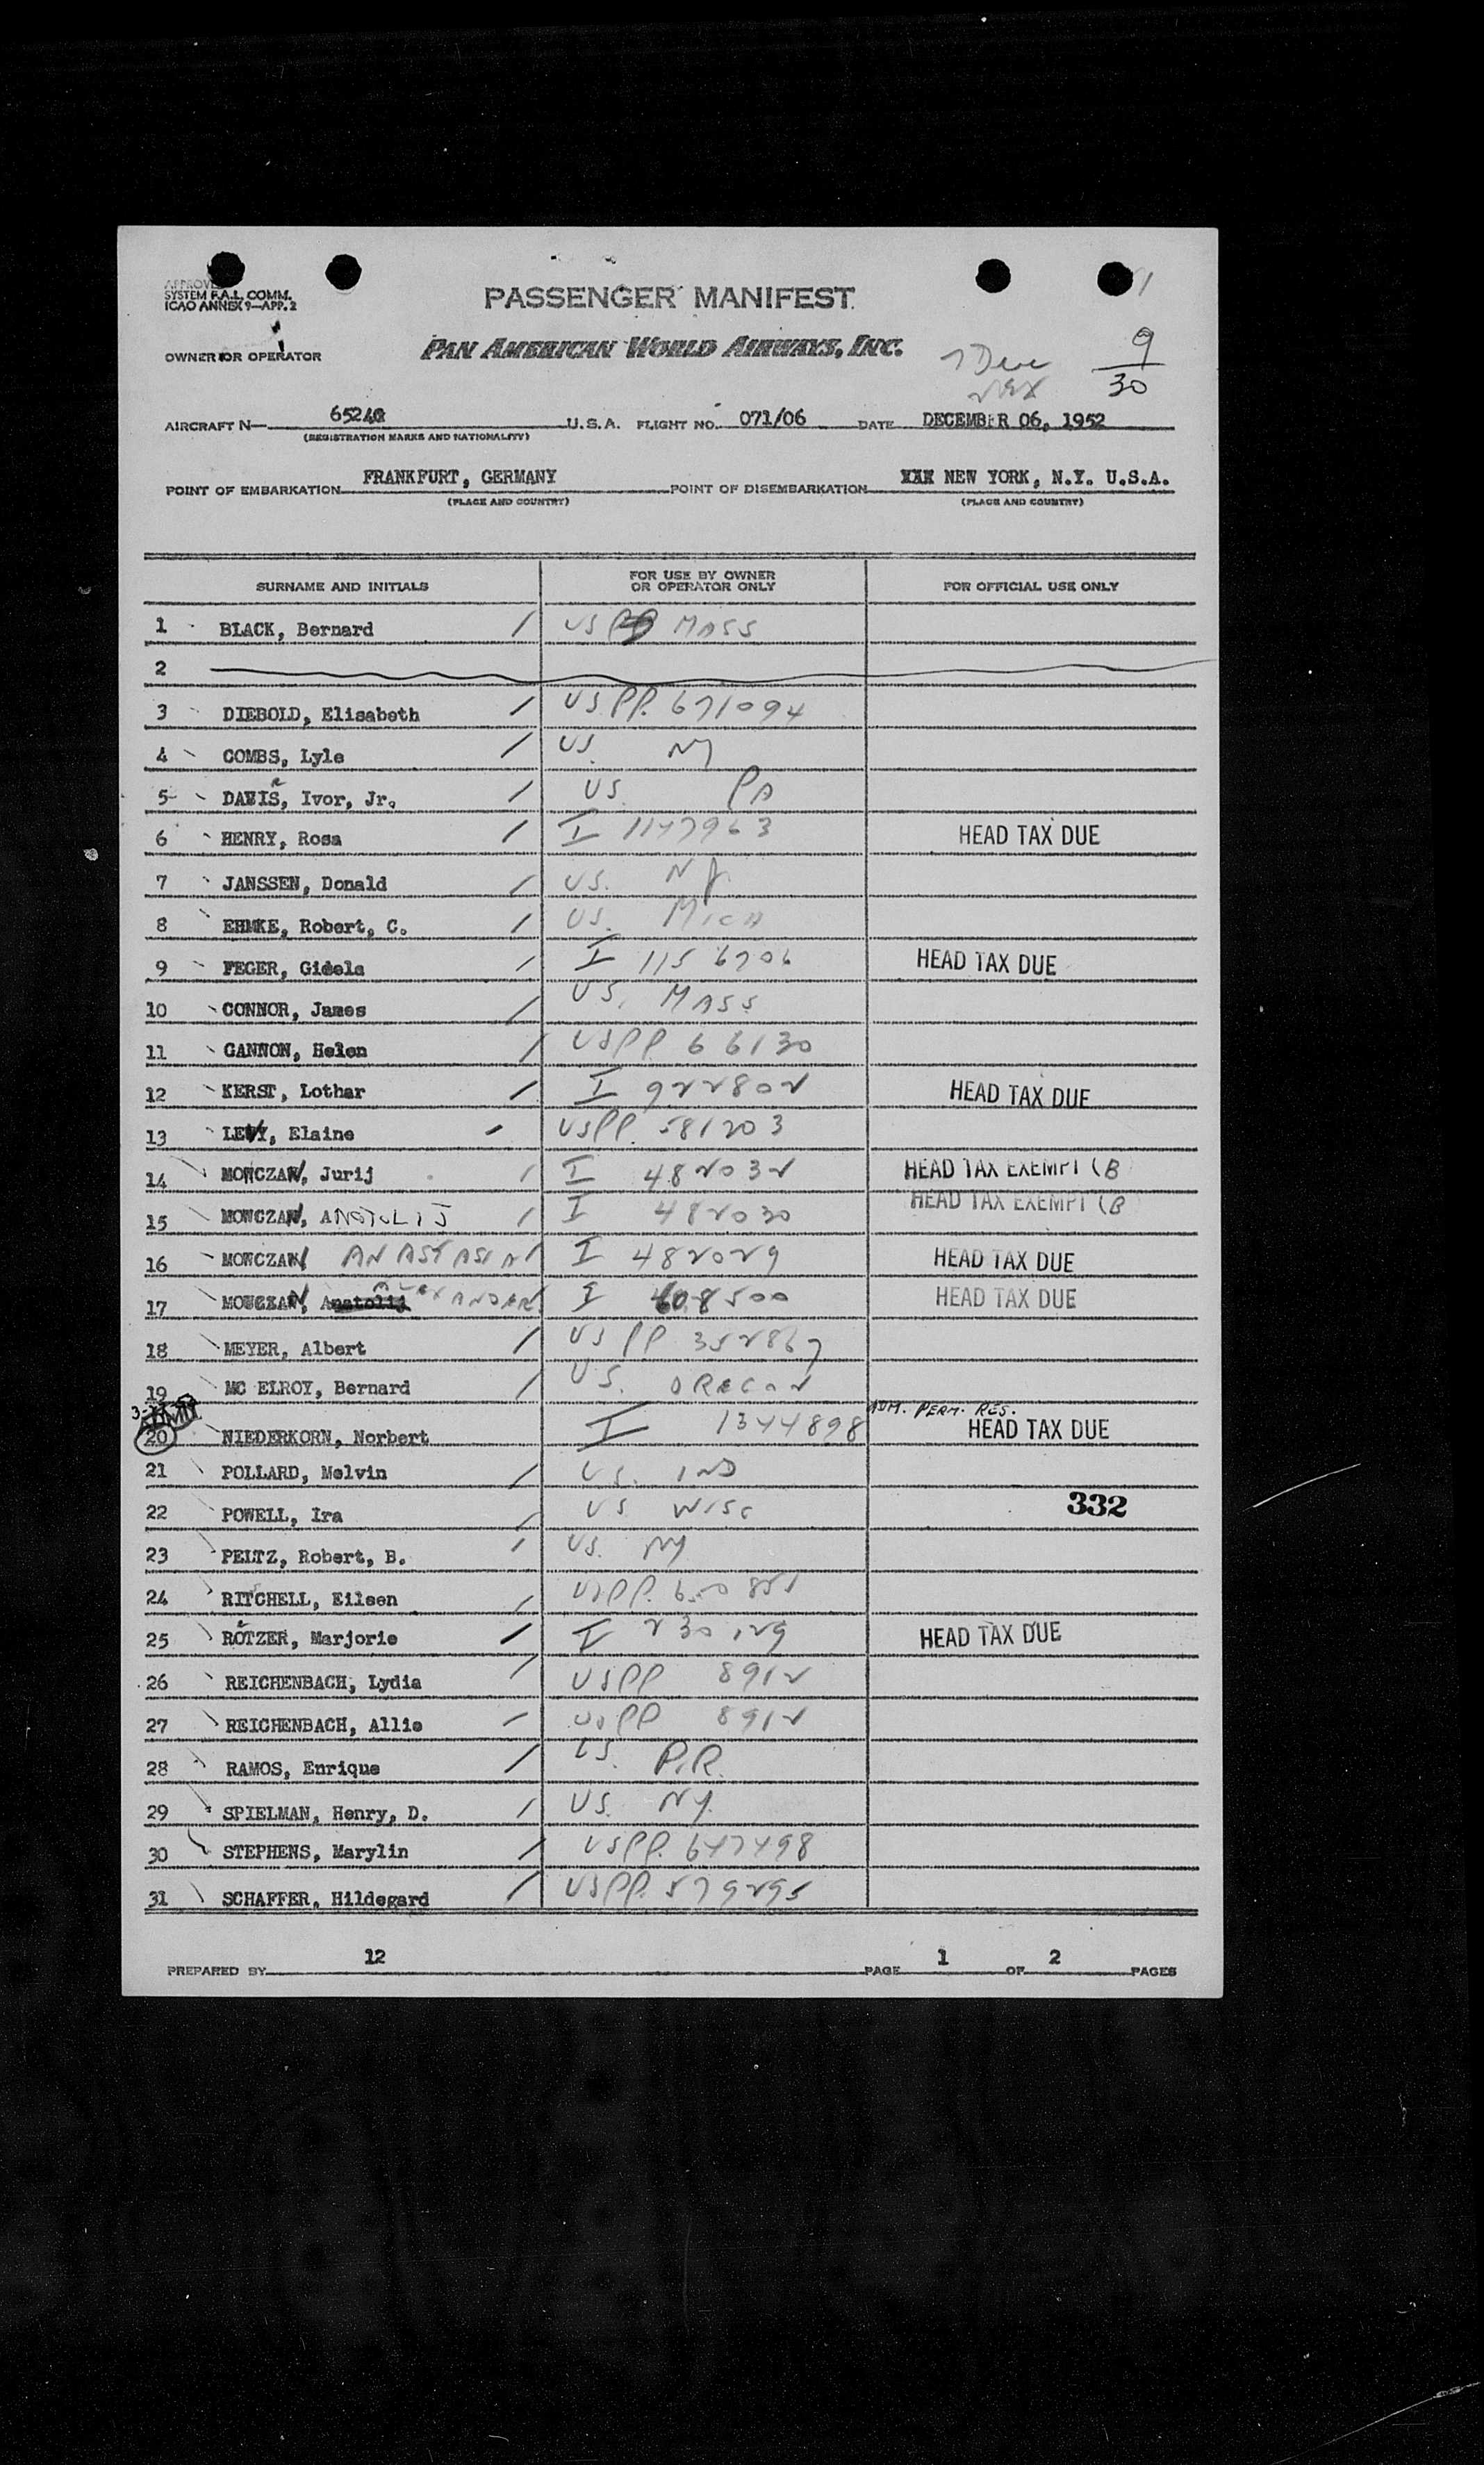 APPROVED
SYSTEM F.A.L. COMM.
ICAO ANNEX 9—APP. 2
PASSENGER MANIFEST
OWNER OR OPERATOR PAN AMERICAN WORLD AIRWAYS, INC.
7 Dec
9
30
AIRCRAFT N— U.S.A. FLIGHT NO. 071/06 DATE DECEMBER 06, 1952
(REGISTRATION MARKS AND NATIONALITY)
POINT OF EMBARKATION FRANKFURT, GERMANY POINT OF DISEMBARKATION NEW YORK, N.Y. U.S.A.
(PLACE AND COUNTRY) (PLACE AND COUNTRY)
SURNAME AND INITIALS FOR USE BY OWNER OR OPERATOR ONLY FOR OFFICIAL USE ONLY
1 BLACK, Bernard / US MASS
2
3 DIEBOLD, Elisabeth / US PP. 671094
4 COMBS, Lyle / US. NY
5 DAVIS, Ivor, Jr. / US. PA
6 HENRY, Rosa / I 1147963 HEAD TAX DUE
7 JANSSEN, Donald / US. NJ.
8 EHMKE, Robert, C. / US. MICH
9 FEGER, Gisela / I 1156706 HEAD TAX DUE
10 CONNOR, James / US. MASS.
11 GANNON, Helen / USPP. 66130
12 KERST, Lothar / I 922802 HEAD TAX DUE
13 LEVY, Elaine / USPP. 581203
14 MOWCZAN, Jurij / I 482032 HEAD TAX EXEMPT (B
15 MOWCZAN, ANATOLIJ / I 482030 HEAD TAX EXEMPT (B
16 MOWCZAN ANASTASIA / I 482029 HEAD TAX DUE
17 MOWCZAN, Anatolij ALEXANDER I 608500 HEAD TAX DUE
18 MEYER, Albert / US PP 352867
19 MC ELROY, Bernard / US. OREGON
20 NIEDERKORN, Norbert I 1344898 ADM. PERM. RES. HEAD TAX DUE
21 POLLARD, Melvin / US. IND
22 POWELL, Ira / US WISC 332
23 PELTZ, Robert, B. / US. NY
24 RITCHELL, Eileen / USPP.
25 RÖTZER, Marjorie / I 230129 HEAD TAX DUE
26 REICHENBACH, Lydia / USPP 8912
27 REICHENBACH, Allie / USPP 8912
28 RAMOS, Enrique / US. P.R.
29 SPIELMAN, Henry, D. / US. NY.
30 STEPHENS, Marylin / USPP. 647498
31 SCHAFFER, Hildegard / USPP. 579295
PREPARED BY 12 PAGE 1 OF 2 PAGES